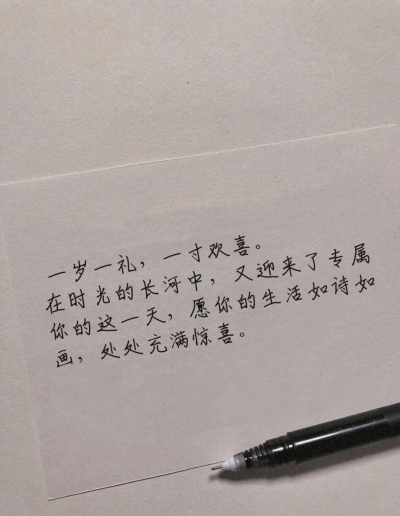 一岁一礼，一寸欢喜。
在时光的长河中，又迎来了专属
你的这一天，愿你的生活如诗如
画，处处充满惊喜。